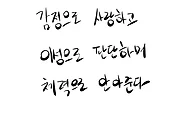 감정으로 사랑하고
이성으로 판단하며
체력으로 안아준다